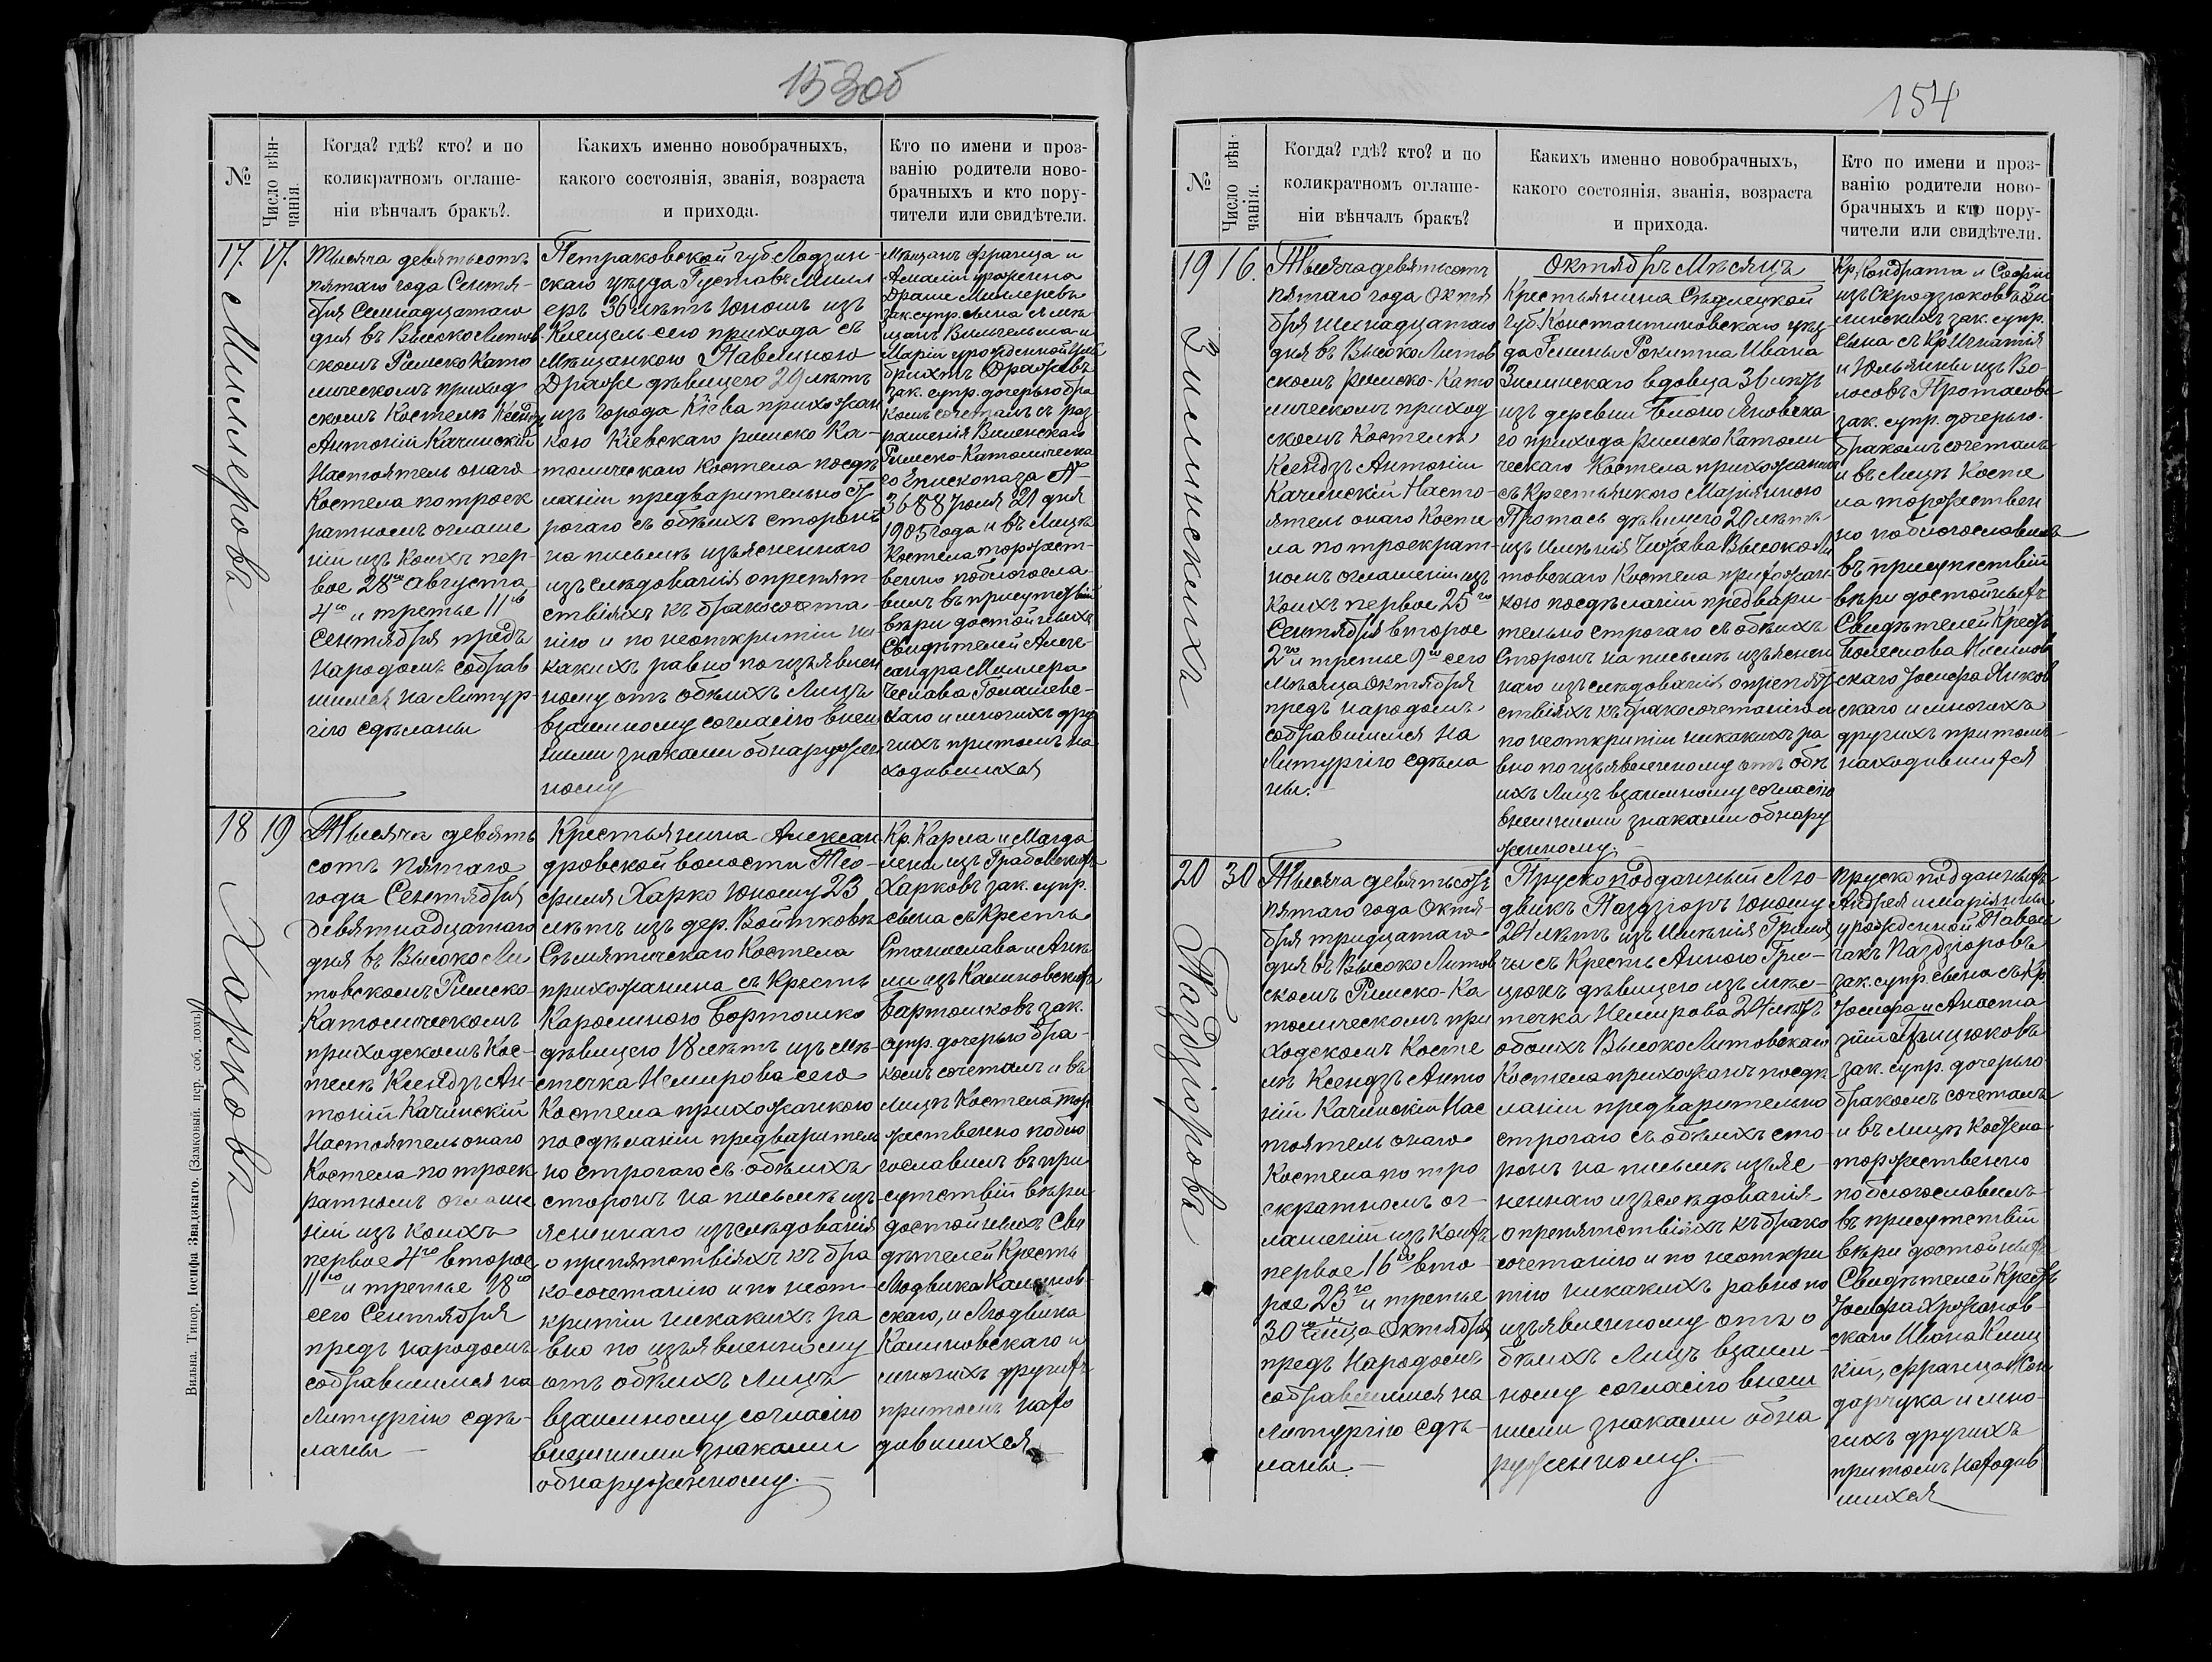 153об
№
Число вѣн-
чанія.
Когда? гдѣ? кто? и по
коликратномъ оглаше-
ніи вѣнчалъ бракъ?.
Какихъ именно новобрачныхъ,
какого состоянія, званія, возраста
и прихода.
Кто по имени и проз-
ванію родители ново-
брачныхъ и кто пору-
чители или свидѣтели.
17.
17.
Миллеровъ
Тысяча девятьсотъ
пятаго года Сентя-
бря Семнадцатаго
дня въ Высоко Литов-
скомъ Римско Като
лическомъ приход
скомъ Костелѣ Ксендзъ
Антоній Качинскій
Настоятель онаго
Костела по троек
ратномъ оглаше
ніи изъ коихъ пер-
вое 28го Августа
4го и третье 11го
Сентября предъ
народомъ собрав
шимся на Литур-
гію сдѣланы
Петраковской губ. Лодзин-
скаго уѣзда Густавъ Милл
еръ 36 лѣтъ юношъ изъ
сего прихода съ
Мѣщанкою Павлиною
Драже дѣвицею 29 лѣтъ
изъ города Кіева прихожан
кою Кіевскаго римско Ка-
толическаго костела посдѣ
ланіи предварительно ст
рогаго съ обѣихъ сторонъ
на письмѣ изъясненнаго
изъслѣдованія о препят
ствіяхъ къ бракосочета-
нію и по неоткрытіи ни
какихъ равно по изъявлен
ному отъ обѣихъ Лицъ
взаимному согласію внеш
ними знаками обнаружен
ному
Мѣщанъ Франца и
Амаліи урожденна
Драше Миллеровъ
зак. супр. сына съ Мѣ
щанъ Вильгельма и
Маріи урожденной
Дражевъ
зак. супр. дочерью бра
комъ сочеталъ съ раз-
рѣшенія Виленскаго
Римско-Католическа
го Епископа за №
3688 Іюня 21 дня
1905 года и въ Лицѣ
Костела торжест-
венно поблагосло-
вилъ въ присутствіи
вѣри достойныхъ
Свидѣтелей Алек-
сандра Миллера
Чеслава Томашевс-
каго и многихъ дру
гихъ притомъ на
ходившихся
18
19
Харковъ
Тысяча девять
сотъ пятаго
года Сентября
девятнадцатаго
дня въ Высоко Ли
товскомъ Римско-
Католическомъ
приходскомъ Кос-
телѣ Ксендзъ Ан-
тоній Качинскій
Настоятель онаго
Костела по троек
ратномъ оглаше
ніи изъ коихъ
первое 4го второе
11го и третье 18го
сего Сентября
предъ народомъ
собравшимся на
Литургію сдѣ-
ланы
Крестьянина Алексан
дровской волости Тео-
филя Харко юношу 23
лѣтъ изъ дер. Войтковъ
Сѣмятическаго Костела
прихожанина съ Кресть
Каролиною Бортошко
дѣвицею 18 лѣтъ изъ мѣ-
стечка Немирова сего
Костела прихожанкою
посдѣланіи предваритель
но строгаго съ обѣихъ
сторонъ на письмѣ изъ
ясненнаго изъслѣдованія
о препятствіяхъ къ бра
ко-сочетанію и по неот
крытіи никакихъ ра
вно по изъявленному
отъ обѣихъ Лицъ
взаимному согласію
внешними знаками
обнаруженному.
Кр. Карла и Магда
лены изъ
Харковъ зак. супр.
сына съ Кресть
Станислава и Анѣ
ли изъ Калиновскихъ
Бартошковъ зак.
супр. дочерью бра-
комъ сочеталъ и въ
Лицѣ Костела тор
жественно побла
гословилъ въ при
сутствіи вѣри
достойныхъ Сви
дѣтелей Кресть
Людвика Калинов-
скаго, и Людвика
Калиновскаго и
многихъ другихъ
притомъ нахо
дившихся
Вильна. Типогр. Іосифа Завадзкаго. (Замковый. пер. соб. домъ)
154
№
Число вѣн-
чанія.
Когда? гдѣ? кто? и по
коликратномъ оглаше-
ніи вѣнчалъ бракъ?
Какихъ именно новобрачныхъ,
какого состоянія, званія, возраста
и прихода.
Кто по имени и проз-
ванію родители ново-
брачныхъ и кто пору-
чители или свидѣтели.
19
16.
Зилинскихъ
Тысяча девятьсотъ
пятаго года Октя
бря Шеснадцатаго
дня въ Высоко Литов
скомъ римско-Като
лическомъ приход
скомъ Костелѣ
Ксендзъ Антоній
Качинскій Насто-
ятель онаго Косте
ла по троекрат-
номъ оглашеніи изъ
коихъ первое 25го
Сентября второе
2го и третье 9го сего
Мѣсяца Октября
предъ народомъ
собравшимся на
Литургію сдѣла
ны.
Октябрь Мѣсяцъ
Крестьянина Сѣдлецкой
Губ. Константиновскаго уѣз-
да Гмины Рокитна Ивана
Зилинскаго вдовца 36 лѣтъ
изъ деревни Яновска
го прихода римско Католи
ческаго Костела прихожанина
съ Крестьянкою Маріянною
Протась дѣвицею 20 лѣтъ
изъ имѣнія Высоко Ли
товскаго Костела прихожан
кою посдѣланіи предвари-
тельно строгаго съ обѣихъ
Сторонъ на письмѣ изъяснен
наго изъслѣдованія о препят
ствіяхъ къ бракосочетанію и
по неоткрытіи никакихъ ра
вно по изъявленному отъ обѣ
ихъ Лицъ взаимному согласію
внешними знаками обнару
женному.
Кр. Кондрата и Софіи
изъ Скродзюковъ Зи
линскихъ зак. супр.
сына съ Кр. Игнатія
и Юльянны изъ Во-
лосовъ Протасовъ
зак. супр. дочерью
бракомъ сочеталъ
и въ Лицѣ Косте
ла торжествен
но поблогославилъ
въ присутствіи
вѣри достойныхъ
Свидѣтелей Кресть
Болеслава
скаго Іосифа
скаго и многихъ
другихъ притомъ
находившихся
20
30
Паздзіоровъ
Тысяча девятьсотъ
пятаго года Октя-
бря тридцатаго
дня въ Высоко Литов
скомъ Римско-Ка
толическомъ при
ходскомъ Косте
лѣ Ксендзъ Анто
ній Качинскій Нас
тоятель онаго
Костела по тро
екратномъ ог-
лашеніи изъ коихъ
первое 16го вто-
рое 23го и третье
30го Октября
предъ Народомъ
собравшимся на
Литургію сдѣ-
ланы.
Пруско подданный Лю-
двикъ Паздзіоръ юношу
24 лѣтъ изъ имѣнія
съ Кресть Анною Гри-
цюкъ дѣвицею изъ мѣс-
течка Немирова 24 лѣтъ
обоихъ Высоко Литовскаго
Костела прихожанъ посдѣ-
ланіи предварительно
строгаго съ обѣихъ сто-
ронъ на письмѣ изъяс-
неннаго изъслѣдованія
о препятствіяхъ къ брако
сочетанію и по неоткры
тію никакихъ равно по
изъявленному отъ о
бѣихъ Лицъ взаим-
ному согласію внеш
ними знаками обна
руженному.
Пруско подданныхъ
Андрея и Маріянны
урожденной Павел
чакъ Паздзіоровъ
зак. супр. сына съ Кр.
Іосифа и Анаста
зіи Грицюковъ
зак. супр. дочерью
бракомъ сочеталъ
и въ Лицѣ Костела
торжественно
поблогославилъ
въ присутствіи
вѣри достойныхъ
Свидѣтелей Кресть
Іосифа Хржанов-
скаго Ивана
Франца
дарчука и мно-
гихъ другихъ
притомъ находив
шихся